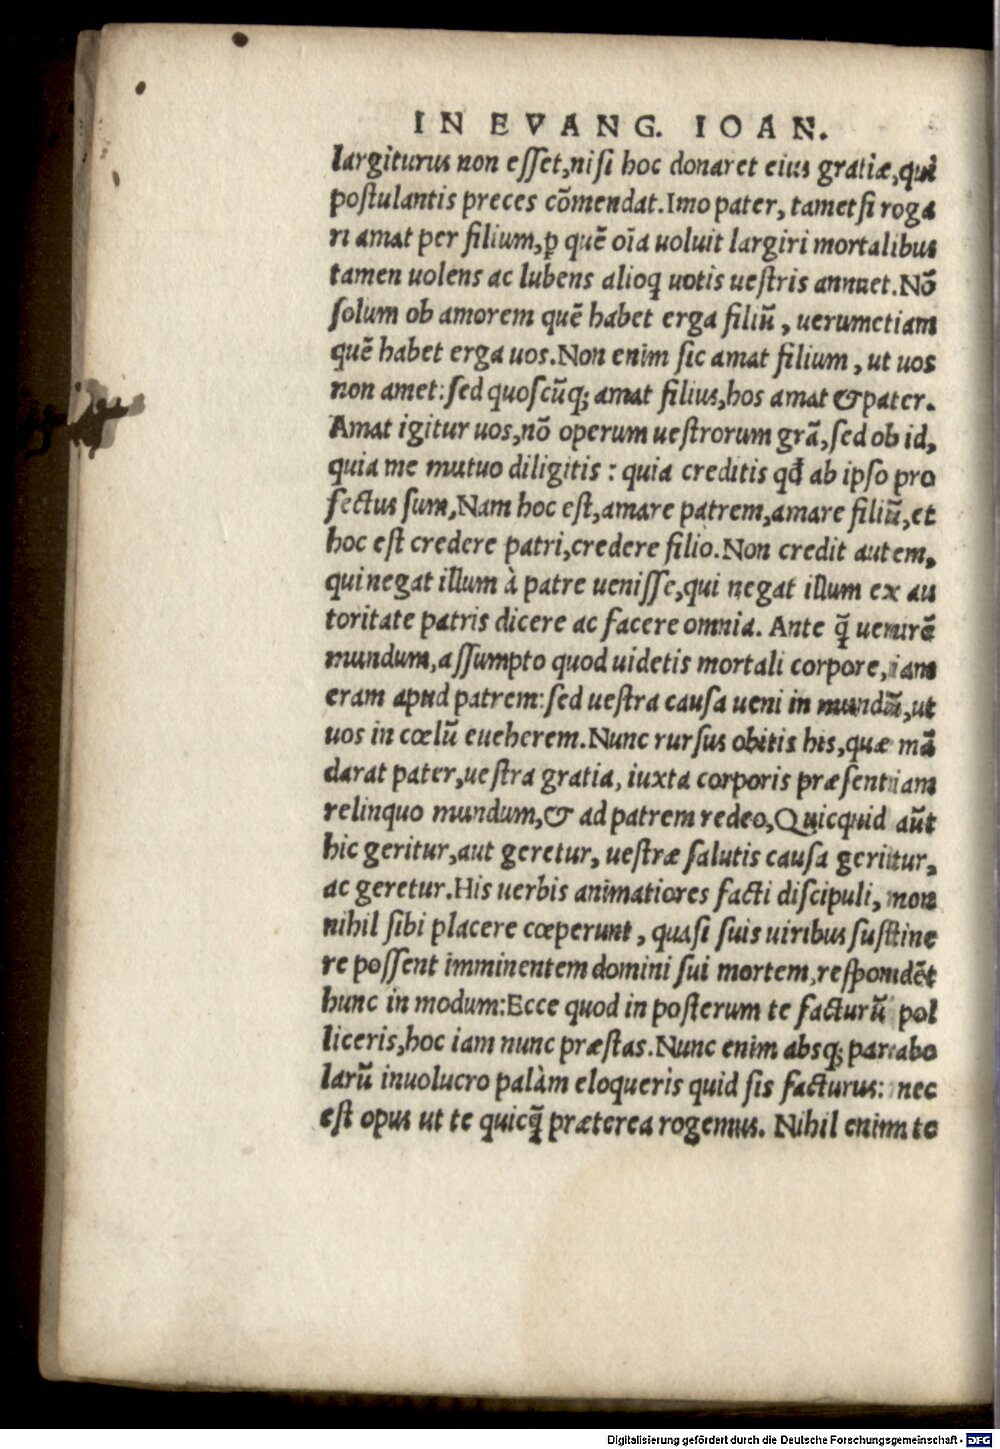 IN EVANG. IOAN.
largiturus non esset,nisi hoc donaret eius gratiæ,qui
postulantis preces cõmendat.Imo pater, tametsi roga
ri amat per filium,ꝑ quẽ oĩa uoluit largiri mortalibus
tamen uolens ac lubens alioq́ uotis uestris annuet.Nõ
solum ob amorem quẽ habet erga filiũ , uerumetiam
quẽ habet erga uos.Non enim sic amat filium , ut uos
non amet:sed quoscũq; amat filius,hos amat & pater.
Amat igitur uos,nõ operum uestrorum grã,sed ob id,
quia me mutuo diligitis : quia creditis qđ ab ipso pro
fectus sum,Nam hoc est,amare patrem,amare filiũ,et
hoc est credere patri,credere filio.Non credit autem,
qui negat illum à patre uenisse,qui negat illum ex au
toritate patris dicere ac facere omnia. Ante q̃ uenirẽ
mundum,assumpto quod uidetis mortali corpore,iam
eram apud patrem:sed uestra causa ueni in mundũ,ut
uos in cœlũ eueherem.Nunc rursus obitis his,quæ mã
darat pater,uestra gratia, iuxta corporis præsentiam
relinquo mundum,& ad patrem redeo,Quicquid aũt
hic geritur,aut geretur, uestræ salutis causa geritur,
ac geretur.His uerbis animatiores facti discipuli, non
nihil sibi placere cœperunt , quasi suis uiribus sustine
re possent imminentem domini sui mortem,respondẽt
hunc in modum:Ecce quod in posterum te facturũ pol
liceris,hoc iam nunc præstas.Nunc enim absq; parabo
larũ inuolucro palàm eloqueris quid sis facturus: nec
est opus ut te quicq̃ præterea rogemus. Nihil enim te
Digitalisierung gefördert durch die Deutsche Forschungsgemeinschaft - DFG